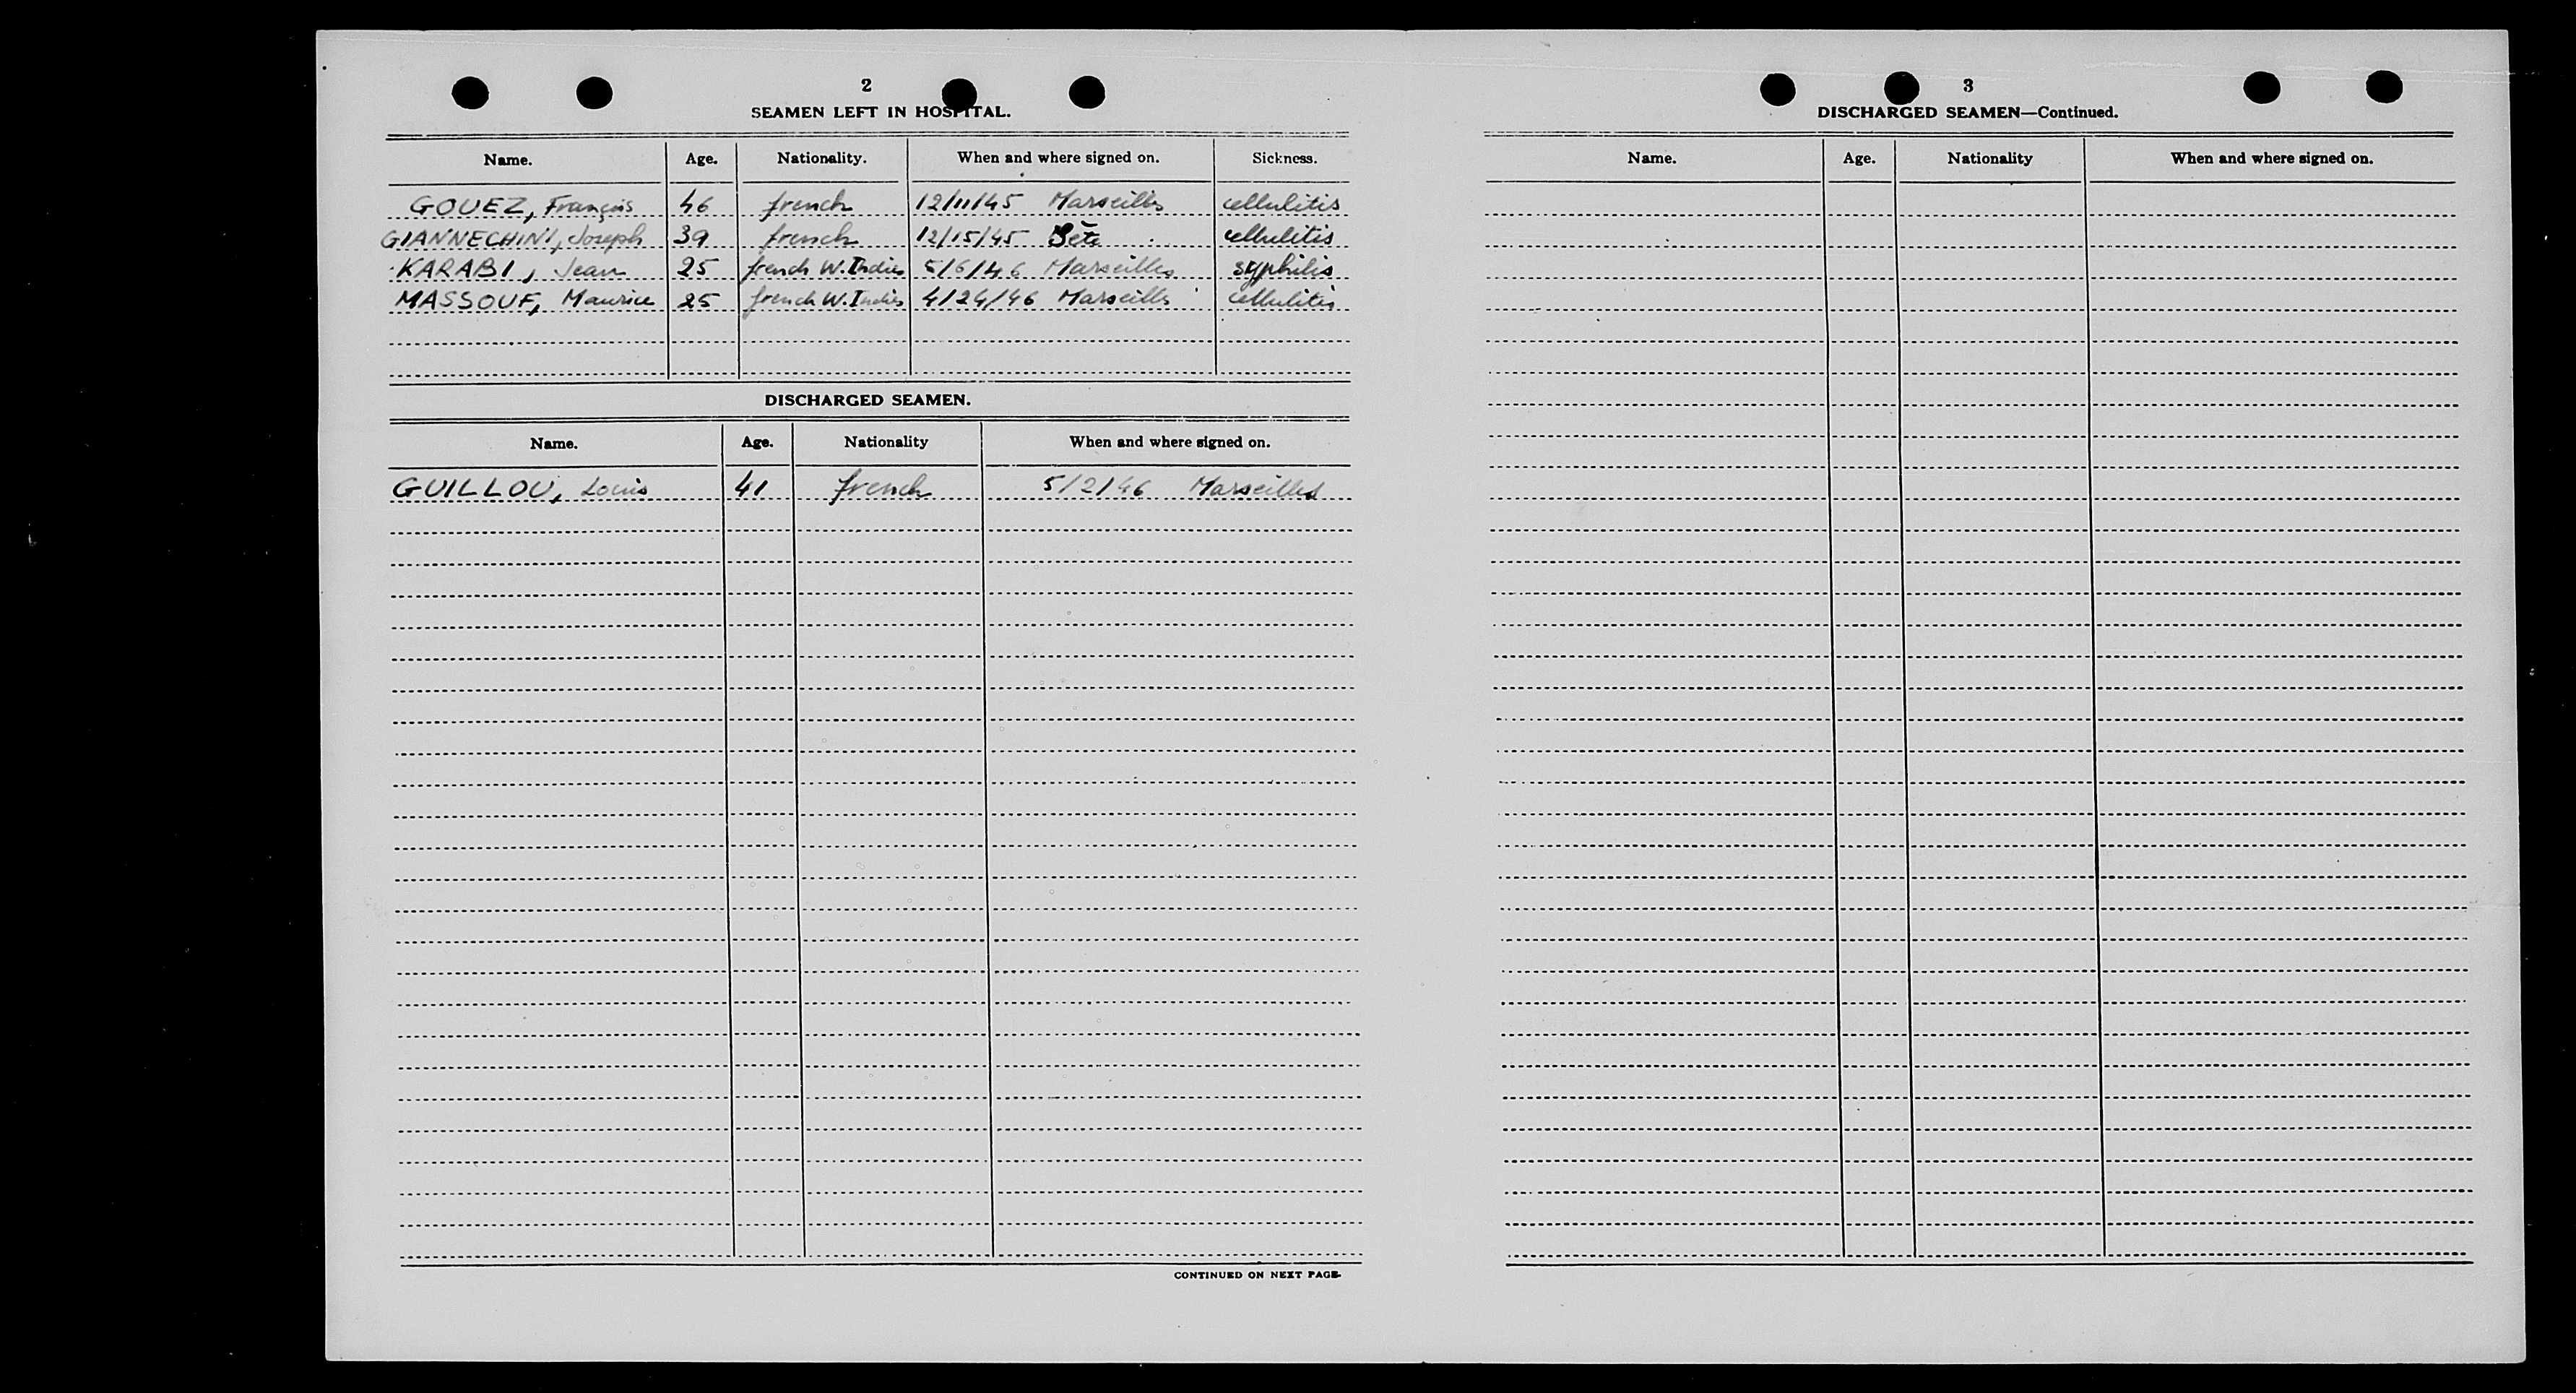 2
SEAMEN LEFT IN HOSPITAL.
Name. Age. Nationality. When and where signed on. Sickness.
GOUEZ, François 46 french 12/11/45 Marseilles cellulitis
GIANNECHINI, Joseph 39 french 12/15/45 Sète cellulitis
KARABI, Jean 25 french W. Indies 5/6/46 Marseilles syphilis
MASSOUF, Maurice 25 french W. Indies 4/24/46 Marseilles cellulitis
DISCHARGED SEAMEN.
Name. Age. Nationality When and where signed on.
GUILLOU, Louis 41 french 5/2/46 Marseilles
CONTINUED ON NEXT PAGE
3
DISCHARGED SEAMEN—Continued.
Name. Age. Nationality When and where signed on.